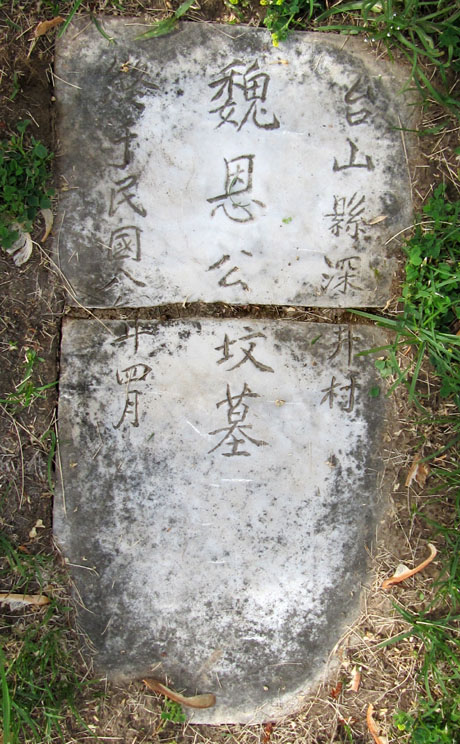 台山縣深井村
魏恩公坟墓
終于民國八年四月